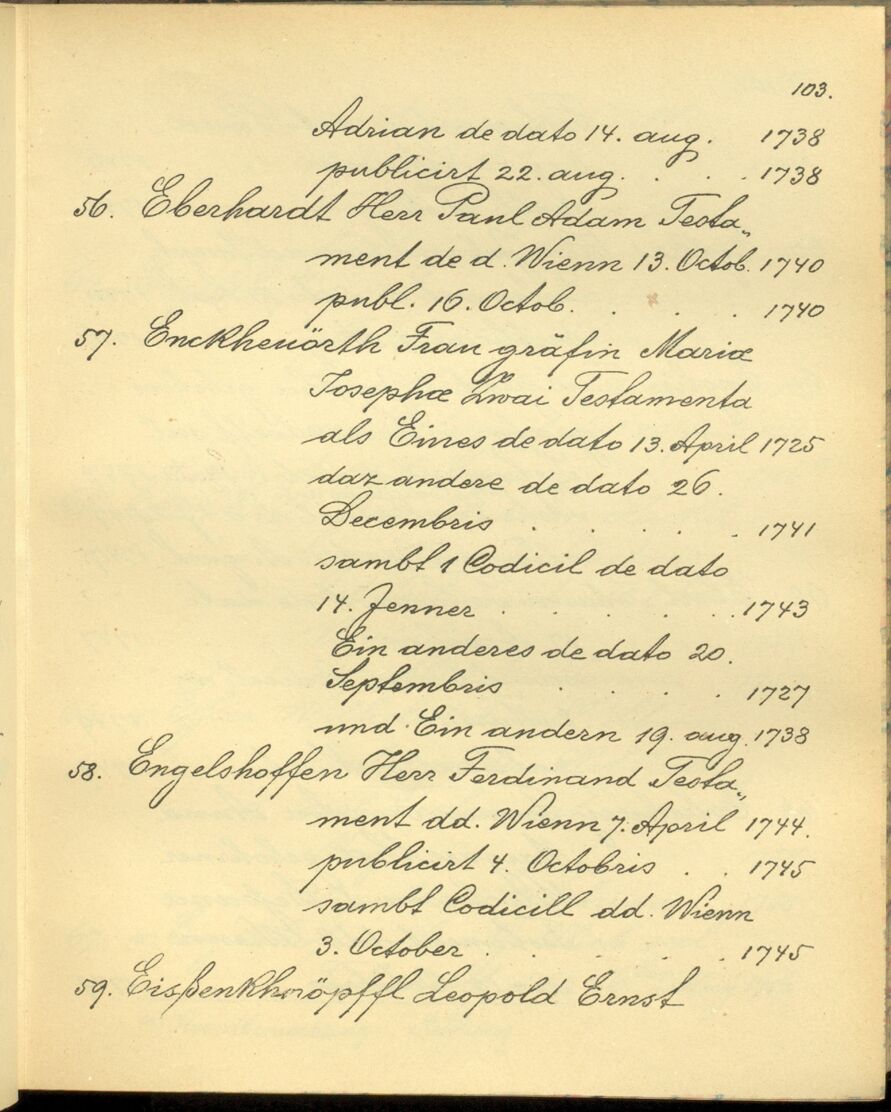 103.
Adrian de dato 14. aug. 1738
publicirt 22. aug. . . . 1738
56. Eberhardt Herr Paul Adam Testa„
ment de d. Wienn 13. Octob. 1740
publ. 16. Octob. . . . . 1740
57. Enckheuörth Frau gräfin Mariæ
Josephæ Zwai Testamenta
als Eines de dato 13. April 1725
daz andere de dato 26.
Decembris . . . . . 1741
sambt 1 Codicil de dato
14. Jenner . . . . . 1743
Ein anderes de dato 20.
Septembris . . . . 1727
und Ein andern 19. aug. 1738
58. Engelshoffen Herr Ferdinand Testa„
ment dd. Wienn 7. April 1744.
publicirt 4. Octobris . . 1745
sambt Codicill dd. Wienn
3. October . . . . . 1745
59. Eisßenkhnöpffl Leopold Ernst